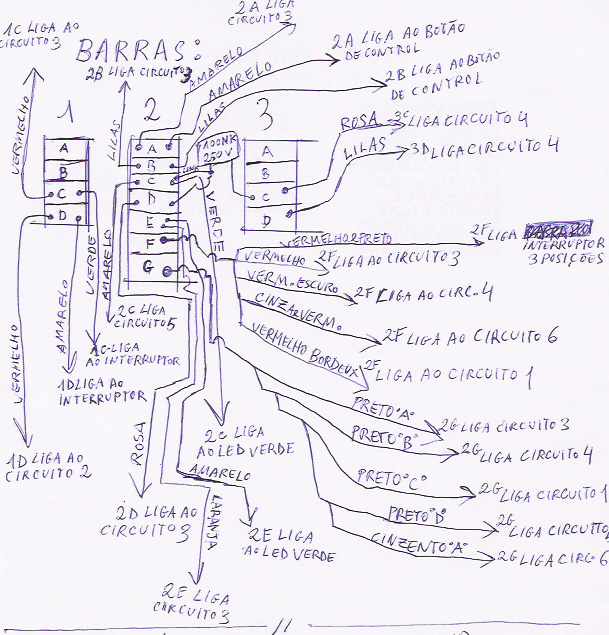 1C LIGA AO
CIRCUITO 3
2A LIGA
CIRCUITO 3
BARRAS:
2B LIGA CIRCUITO 3
AMARELO
AMARELO
LILAS
2A LIGA AO BOTÃO
DE CONTROL
2B LIGA AO BOTÃO
DE CONTROL
VERMELHO
LILAS
1
2
3
100NK
250V
ROSA
3C LIGA CIRCUITO 4
LILAS
3D LIGA CIRCUITO 4
A
B
C
D
A
B
C
D
E
F
G
A
B
C
D
VERDE
VERDE
AMARELO
AMARELO
VERMELHO
VERMELHO E PRETO
2F LIGA
INTERRUPTOR
3 POSIÇÕES
VERMELHO
2F LIGA AO CIRCUITO 3
VERM. ESCURO
2F LIGA AO CIRC. 4
CINZA VERM.
2F LIGA AO CIRCUITO 6
VERMELHO BORDEUX
2F
LIGA AO CIRCUITO 1
2C LIGA
CIRCUITO 5
1C-LIGA
AO INTERRUPTOR
1D LIGA AO
INTERRUPTOR
1D LIGA AO
CIRCUITO 2
ROSA
2C LIGA
AO LED VERDE
AMARELO
LARANJA
PRETO "A"
2G LIGA CIRCUITO 3
PRETO "B"
2G LIGA CIRCUITO 4
PRETO "C"
2G LIGA CIRCUITO 1
PRETO "D"
2G
LIGA CIRCUITO
CINZENTO "A"
2G LIGA CIRC. 6
2D LIGA AO
CIRCUITO 3
2E LIGA
AO LED VERDE
2E LIGA
CIRCUITO 3